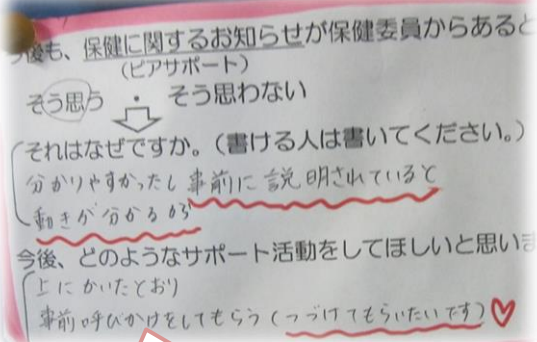 今後も、保健に関するお知らせが保健委員からあると
(ピアサポート)
そう思う ・ そう思わない
それはなぜですか。(書ける人は書いてください。)
分かりやすかったし事前に説明されていると
動きが分かるから
今後、どのようなサポート活動をしてほしいと思いま
上にかいたとおり
事前呼びかけをしてもらう(つづけてもらいたいです)♡